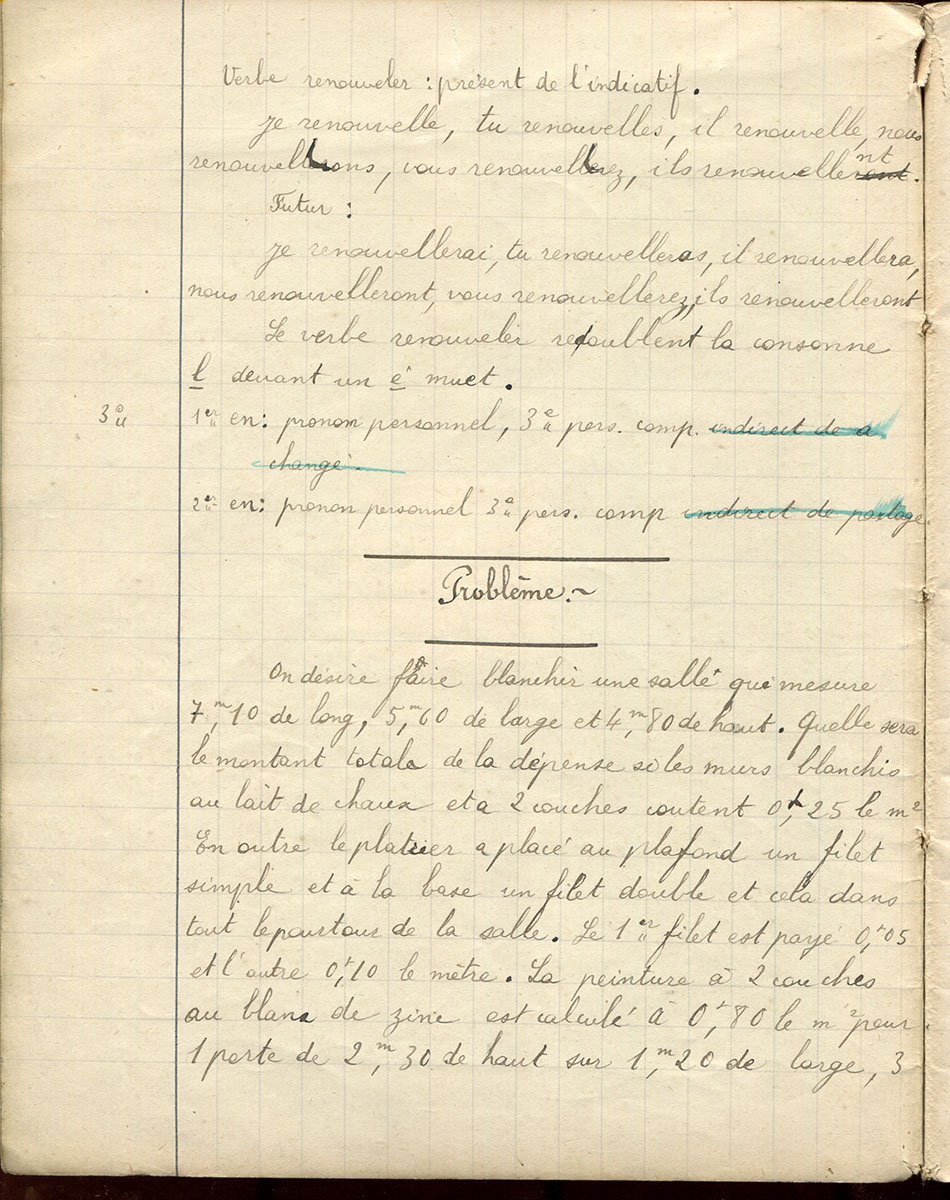 Verbe renouveler : présent de l'indicatif.
Je renouvelle, tu renouvelles, il renouvelle, nous
renouvellons, vous renouvellez, ils renouvellent.
Futur :
Je renouvellerai, tu renouvelleras, il renouvellera,
nous renouvelleront, vous renouvellerez, ils renouvelleront
Le verbe renouveler redoublent la consonne
l devant un e muet.
3e
1er en : pronom personnel, 3e pers. comp. indirect de a
change.
2er en : pronom personnel 3e pers. comp indirect de partage
Problème.~
On désire faire blanchir une salle qui mesure
7m,10 de long, 5,m60 de large et 4m,80 de haut. Quelle sera
le montant totale de la dépense si les murs blanchis
au lait de chaux et a 2 couches coutent 0f,25 le m2
En outre le platrier a placé au plafond un filet
simple et à la base un filet double et cela dans
tout le pourtour de la salle. Le 1er filet est payé 0f,05
et l'autre 0f,10 le mètre. La peinture à 2 couches
au blanc de zinc est calculé à 0f,80 le m2 pour
1 porte de 2m,30 de haut sur 1m,20 de large, 3